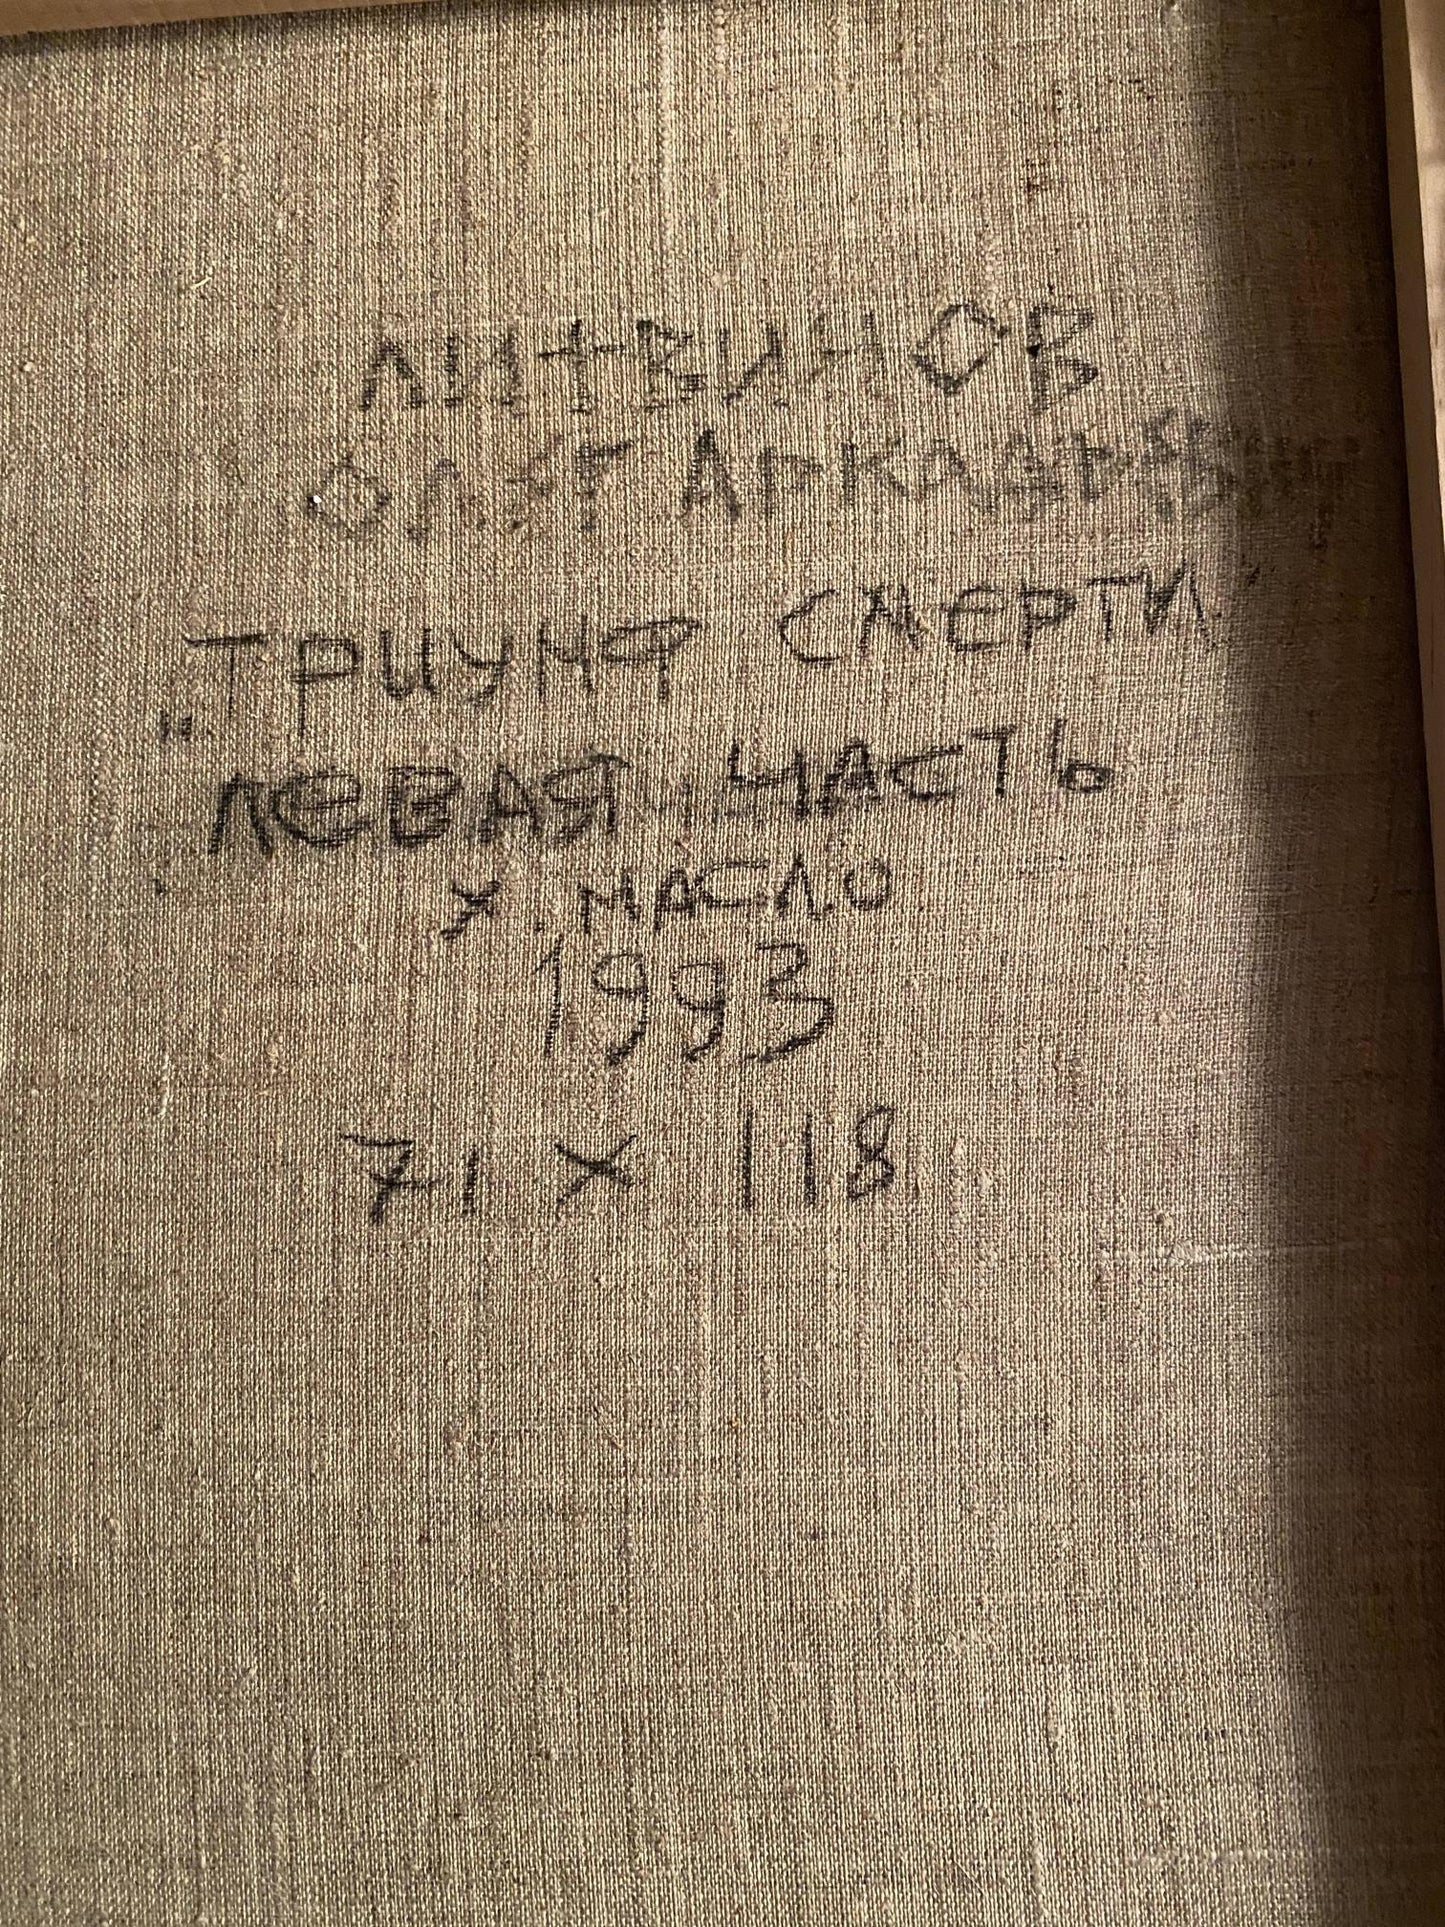 ЛИТВИНОВ
ОЛЕГ АРКАДЬЕВИЧ
„ТРИУМФ СМЕРТИ"
ЛЕВАЯ ЧАСТЬ
х. МАСЛО
1993
71 х 118